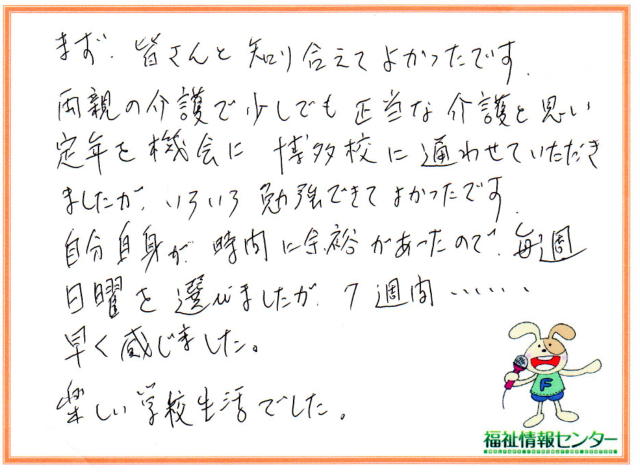 まず、皆さんと知り合えてよかったです。
両親の介護で少しでも正当な介護と思い
定年を機会に 博多校に通わせていただき
ましたが、いろいろ勉強できてよかったです。
自分自身が、時間に余裕があったので、毎週
日曜を選びましたが、7週間……
早く感じました。
楽しい学校生活でした。
F
福祉情報センター